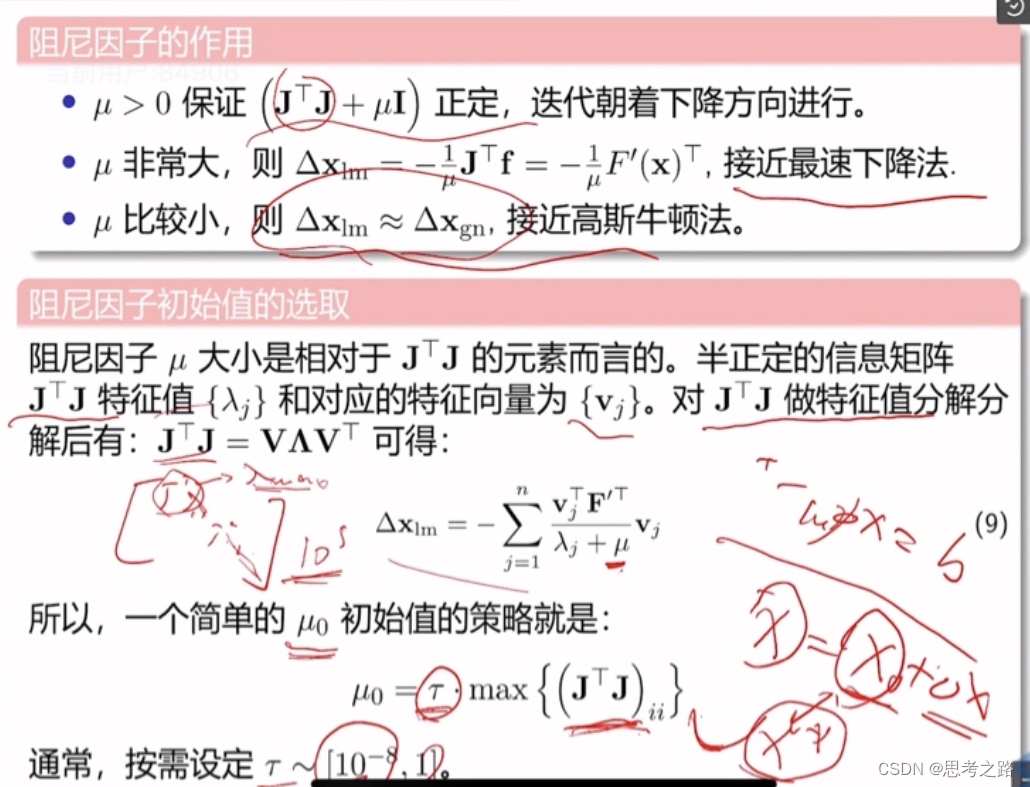 阻尼因子的作用
当前用户:84906
• μ > 0 保证 (J⊤J + μI) 正定，迭代朝着下降方向进行。
• μ 非常大，则 Δx_lm = −1/μ J⊤f = −1/μ F′(x)⊤, 接近最速下降法.
• μ 比较小，则 Δx_lm ≈ Δx_gn, 接近高斯牛顿法。
阻尼因子初始值的选取
阻尼因子 μ 大小是相对于 J⊤J 的元素而言的。半正定的信息矩阵
J⊤J 特征值 {λ_j} 和对应的特征向量为 {v_j}。对 J⊤J 做特征值分解分
解后有：J⊤J = VΛV⊤ 可得：
Δx_lm = − ∑_{j=1}^{n} (v_j⊤ F′⊤)/(λ_j + μ) v_j (9)
10⁵
所以，一个简单的 μ₀ 初始值的策略就是：
μ₀ = τ · max {(J⊤J)_ii}
通常，按需设定 τ ∼ [10⁻⁸, 1]。
CSDN @思考之路